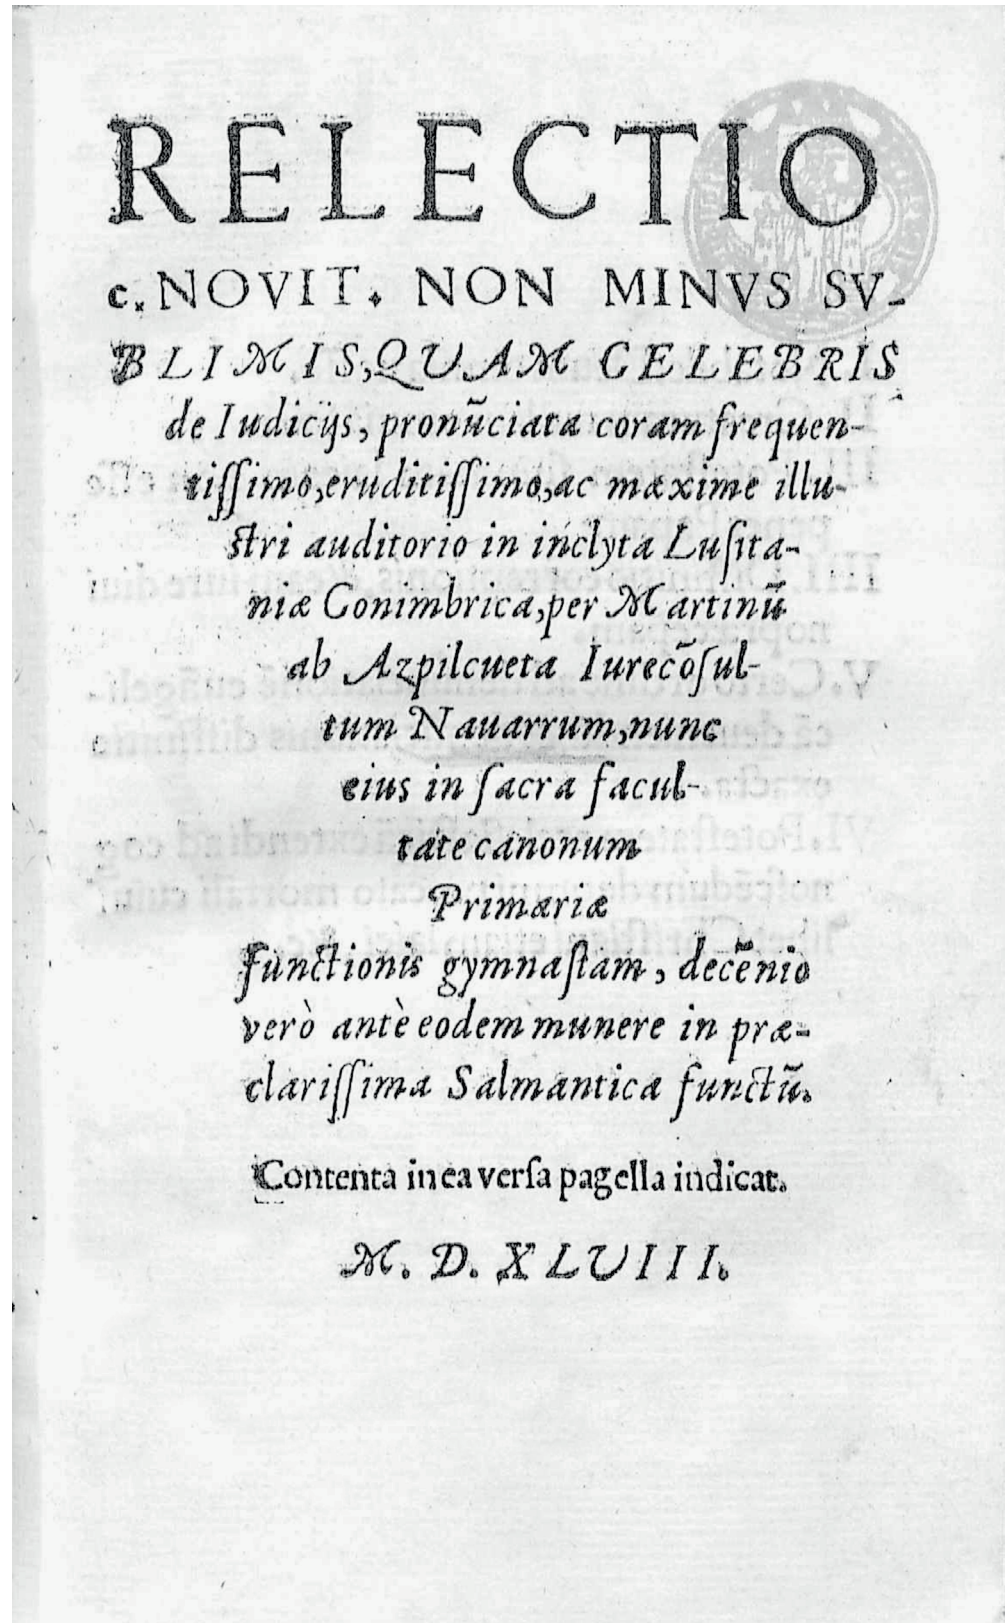 RELECTIO
c. NOVIT. NON MINVS SV-
BLIMIS, QUAM CELEBRIS
de Iudicijs, pronũciata coram frequen-
tiſſimo, eruditiſſimo, ac maxime illu-
ſtri auditorio in inclyta Luſita-
niæ Conimbrica, per Martinũ
ab Azpilcueta Iurecõſul-
tum Nauarrum, nunc
eius in ſacra facul-
tate canonum
Primariæ
functionis gymnaſtam, decẽnio
verò antè eodem munere in præ-
clariſſima Salmantica functũ.
Contenta in ea verſa pagella indicat.
M. D. XLUIII.